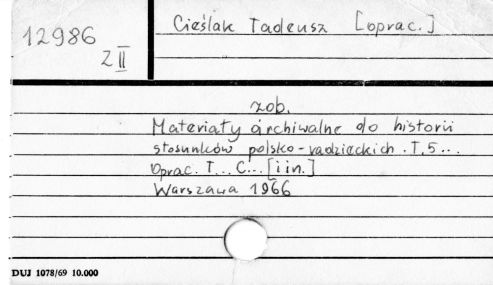 12986
Z II
Cieślak Tadeusz [oprac.]
zob.
Materiały archiwalne do historii
stosunków polsko-radzieckich. T. 5...
Oprac. T... C... [i in.]
Warszawa 1966
DUJ 1078/69 10.000